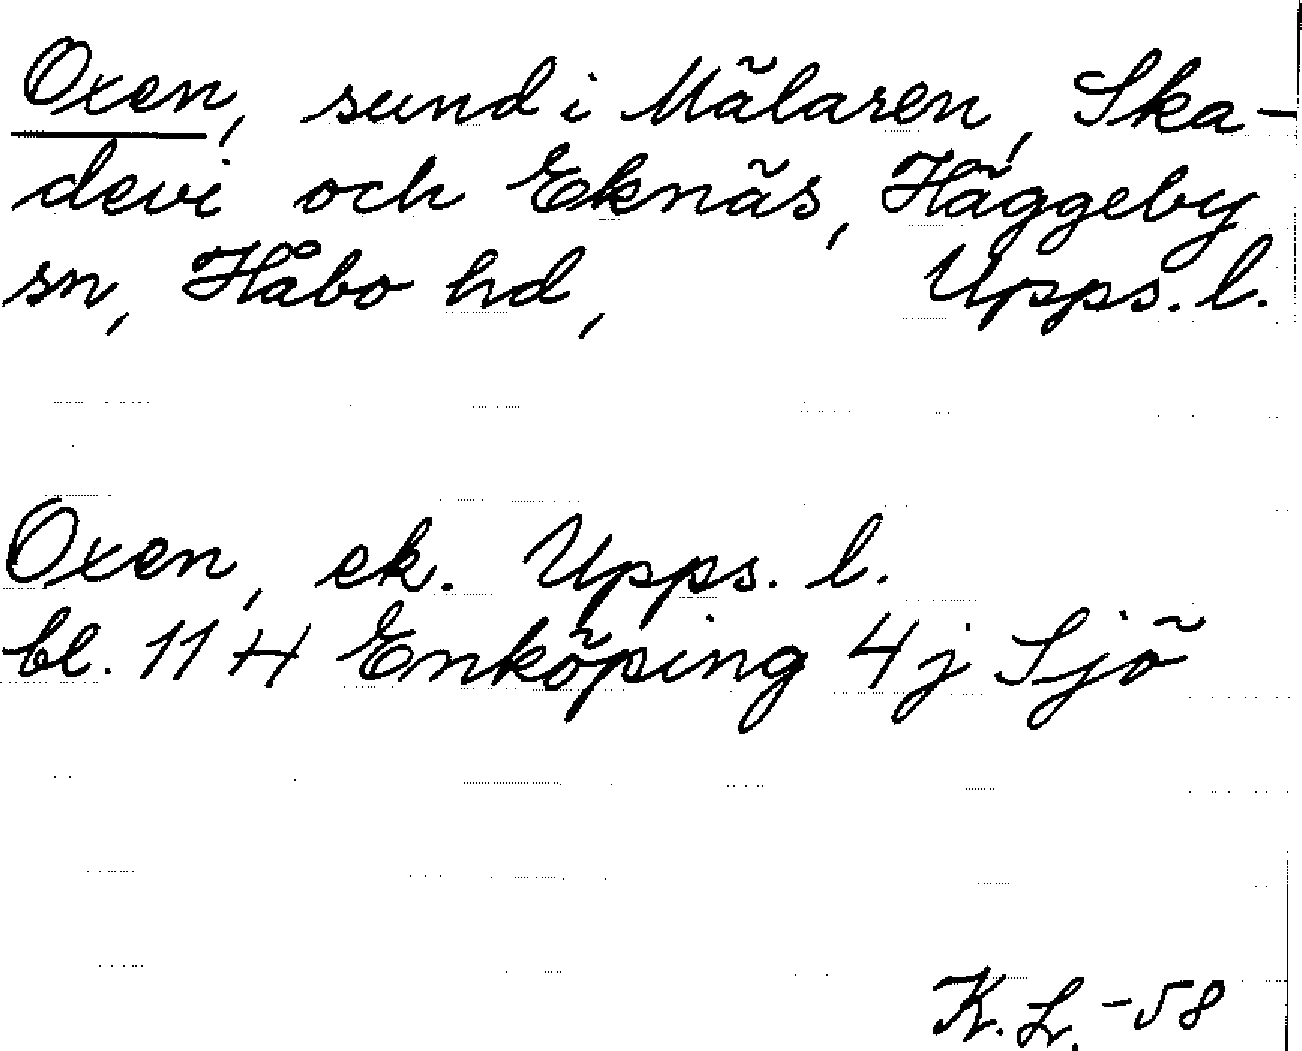 Oxen, sund i Mälaren, Ska-
devi och Eknäs, Häggeby
sn, Håbo hd, Upps. l.
Oxen, ek. Upps. l.
bl. 11 H Enköping 4 j Sjö
K. L. -58